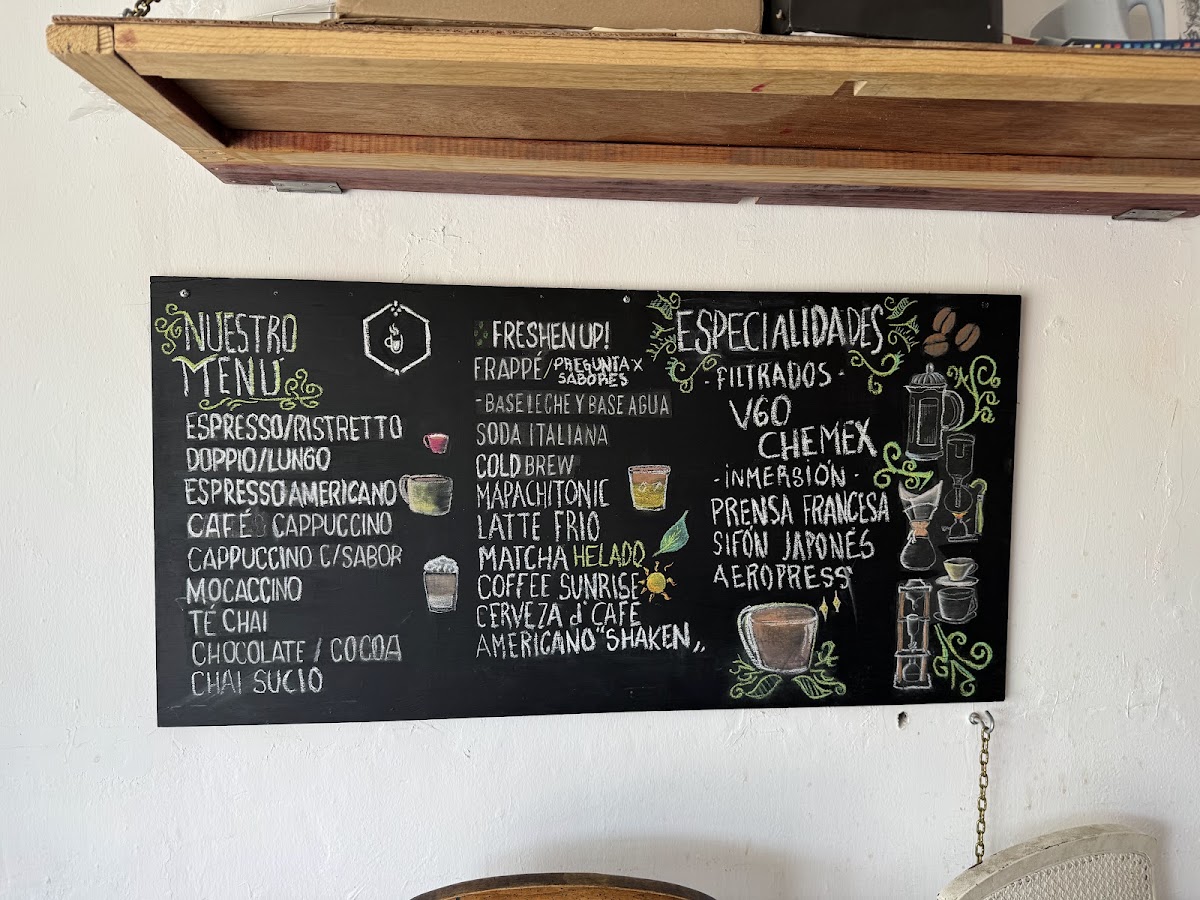 NUESTRO
MENÚ
ESPRESSO/RISTRETTO
DOPPIO/LUNGO
ESPRESSO AMERICANO
CAFÉ CAPPUCCINO
CAPPUCCINO C/SABOR
MOCACCINO
TÉ CHAI
CHOCOLATE / COCOA
CHAI SUCIO
FRESHEN UP!
FRAPPÉ/PREGUNTA X
SABORES
-BASE LECHE Y BASE AGUA
SODA ITALIANA
COLD BREW
MAPACHITONIC
LATTE FRIO
MATCHA HELADO
COFFEE SUNRISE
CERVEZA d' CAFE
AMERICANO "SHAKEN„
ESPECIALIDADES
-FILTRADOS-
V60
CHEMEX
-INMERSIÓN-
PRENSA FRANCESA
SIFÓN JAPONÉS
AEROPRESS